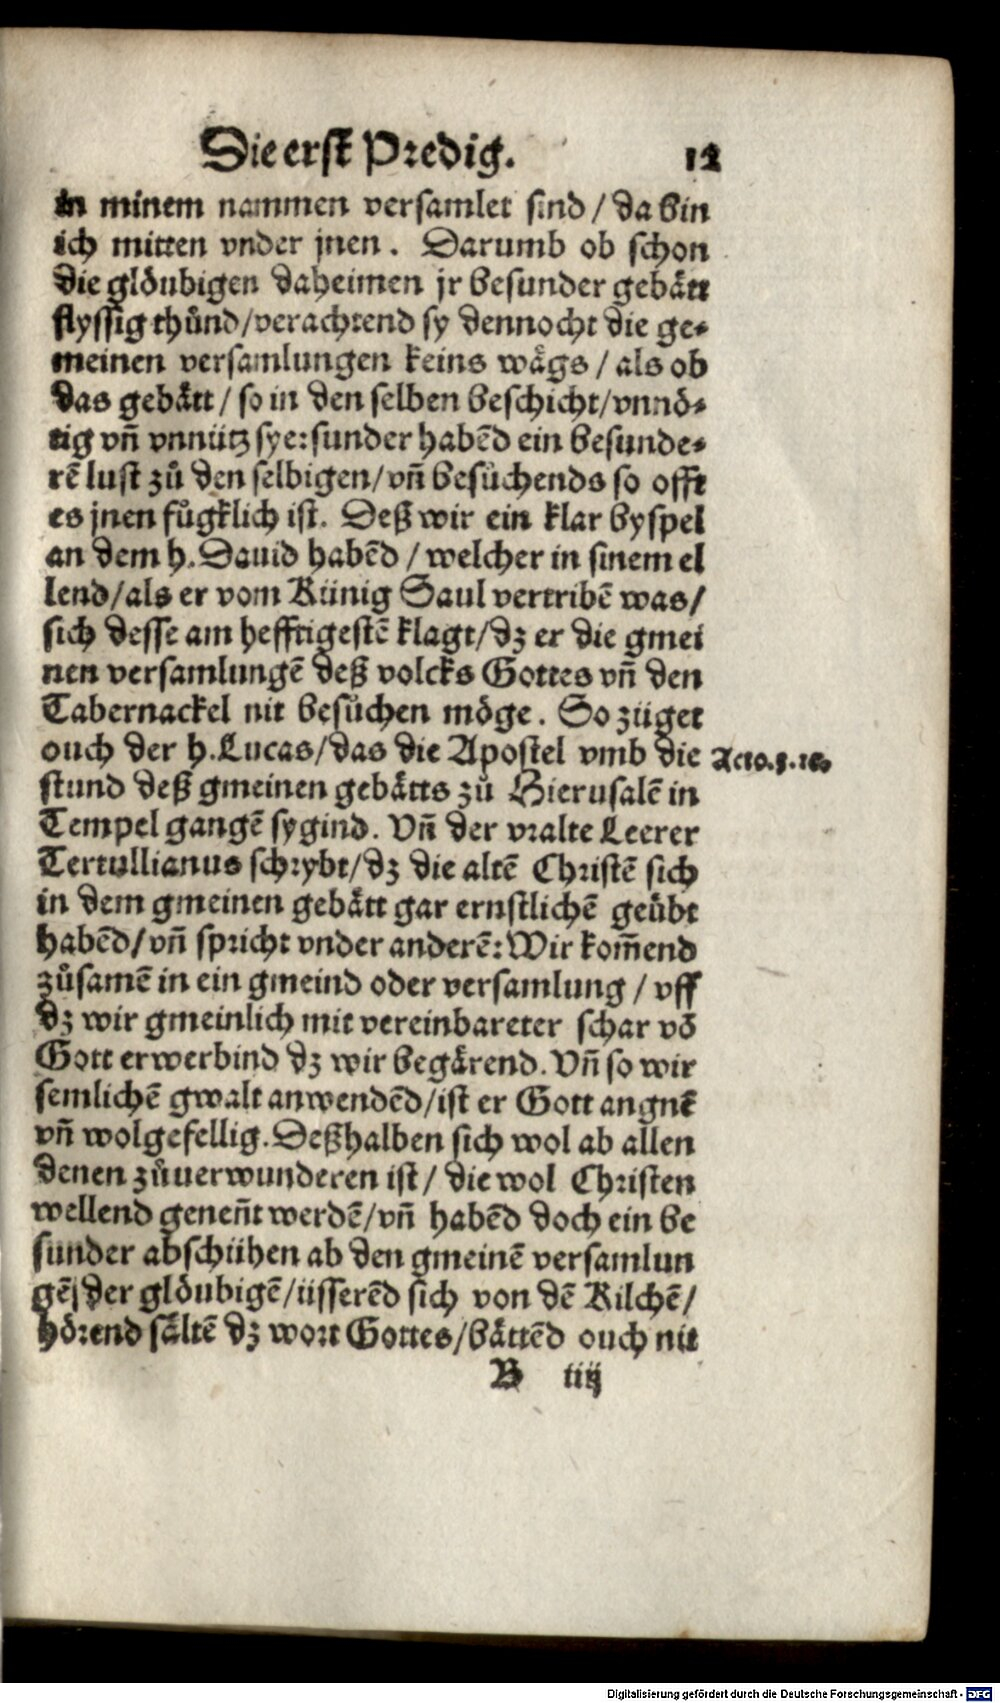 Die erst Predig. 12
in minem nammen versamlet sind / da bin
ich mitten vnder jnen. Darumb ob schon
die glöubigen daheimen jr besunder gebätt
flyssig thůnd / verachtend sy dennocht die ge⸗
meinen versamlungen keins wägs / als ob
das gebätt / so in den selben beschicht / vnnö⸗
tig vñ vnnütz sye: sunder habẽd ein besunde⸗
rẽ lust zů den selbigen / vñ besůchends so offt
es jnen fůgklich ist. Deß wir ein klar byspel
an dem h. Dauid habẽd / welcher in sinem el
lend / als er vom Künig Saul vertribẽ was /
sich desse am hefftigestẽ klagt / dz er die gmei
nen versamlungẽ deß volcks Gottes vñ den
Tabernackel nit besůchen möge. So züget
ouch der h. Lucas / das die Apostel vmb die
stund deß gmeinen gebätts zů Hierusalẽ in
Tempel gangẽ sygind. Vñ der vralte Leerer
Tertullianus schrybt / dz die altẽ Christẽ sich
in dem gmeinen gebätt gar ernstlichẽ geübt
habẽd / vñ spricht vnder anderẽ: Wir kom̃end
zůsamẽ in ein gmeind oder versamlung / vff
dz wir gmeinlich mit vereinbareter schar võ
Gott erwerbind dz wir begärend. Vñ so wir
semlichẽ gwalt anwendẽd / ist er Gott angnẽ
vñ wolgefellig. Deßhalben sich wol ab allen
denen zůuerwunderen ist / die wol Christen
wellend genen̄t werdẽ / vñ habẽd doch ein be
sunder abschühen ab den gmeinẽ versamlun
gẽ der glöubigẽ / üsserẽd sich von dẽ Kilchẽ /
hörend sältẽ dz wort Gottes / bättẽd ouch nit
B iiij
Acto.
Digitalisierung gefördert durch die Deutsche Forschungsgemeinschaft - DFG